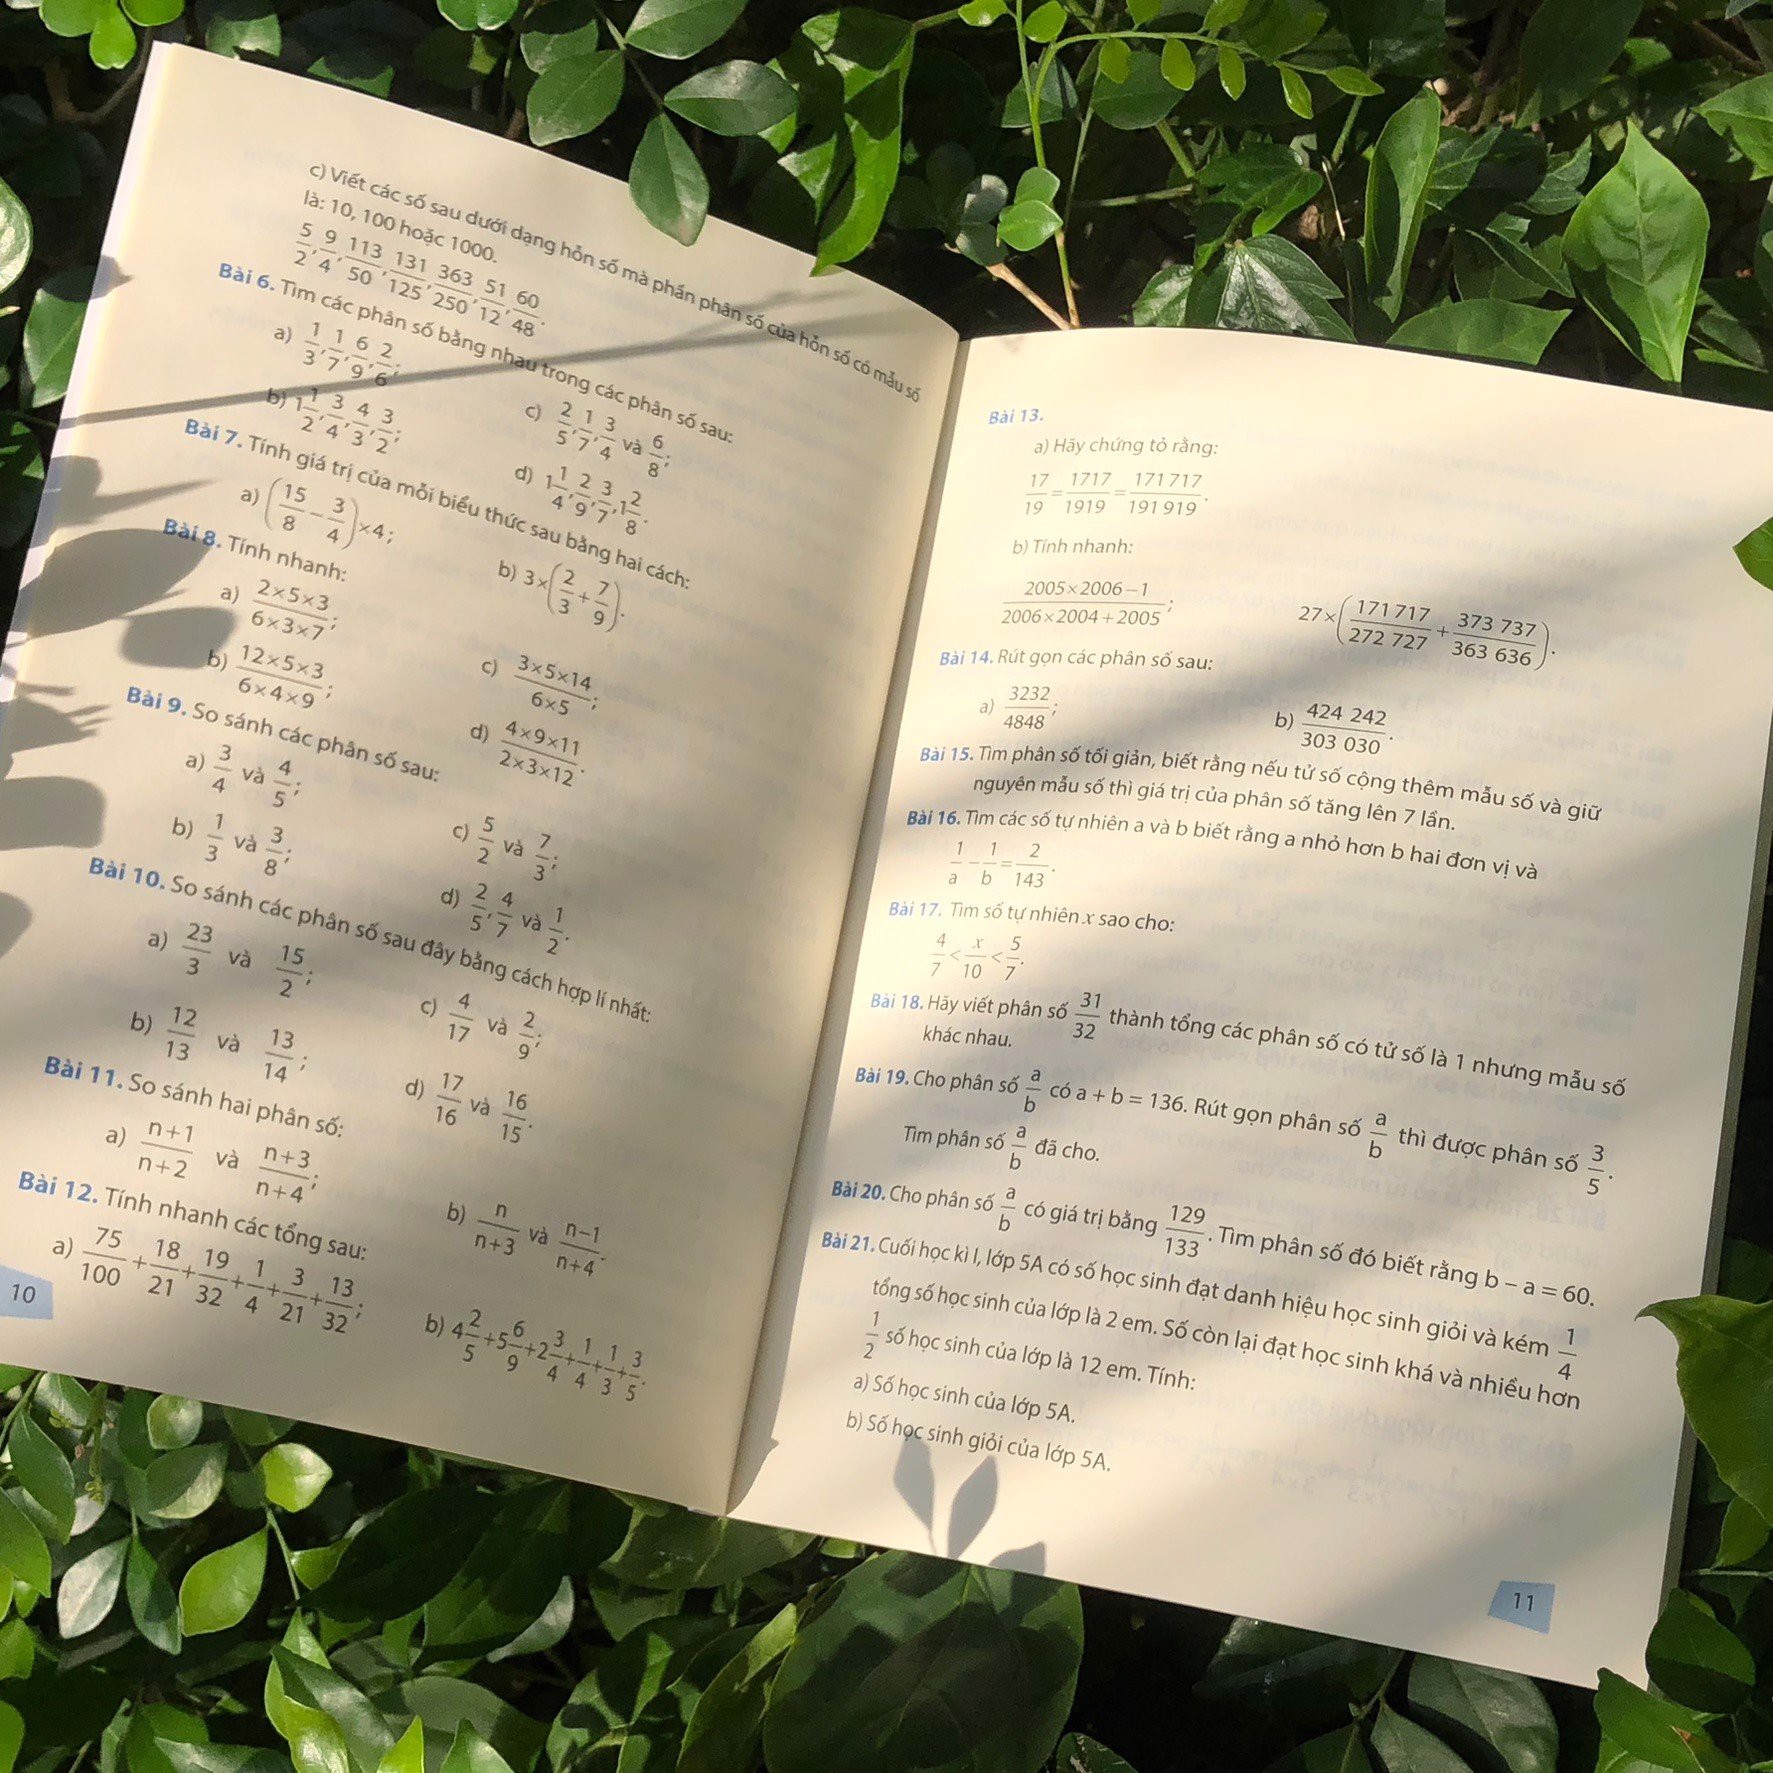 c) Viết các số sau dưới dạng hỗn số mà phần phân số của hỗn số có mẫu số
là: 10, 100 hoặc 1000.
5/2, 9/4, 113/50, 131/125, 363/250, 51/12, 60/48.
Bài 6. Tìm các phân số bằng nhau trong các phân số sau:
a) 1/3, 1/7, 6/9, 2/6;
c) 2/5, 1/7, 3/4 và 6/8;
b) 1 1/2, 3/4, 4/3, 3/2;
d) 1 1/4, 2/9, 3/7, 1 2/8.
Bài 7. Tính giá trị của mỗi biểu thức sau bằng hai cách:
a) (15/8 − 3/4) × 4;
b) 3 × (2/3 + 7/9).
Bài 8. Tính nhanh:
a) 2×5×3 / 6×3×7;
c) 3×5×14 / 6×5;
b) 12×5×3 / 6×4×9;
d) 4×9×11 / 2×3×12.
Bài 9. So sánh các phân số sau:
a) 3/4 và 4/5;
c) 5/2 và 7/3;
b) 1/3 và 3/8;
d) 2/5, 4/7 và 1/2.
Bài 10. So sánh các phân số sau đây bằng cách hợp lí nhất:
a) 23/3 và 15/2;
c) 4/17 và 2/9;
b) 12/13 và 13/14;
d) 17/16 và 16/15.
Bài 11. So sánh hai phân số:
a) n+1/n+2 và n+3/n+4;
b) n/n+3 và n−1/n+4.
Bài 12. Tính nhanh các tổng sau:
a) 75/100 + 18/21 + 19/32 + 1/4 + 3/21 + 13/32;
b) 4 2/5 + 5 6/9 + 2 3/4 + 1/4 + 1/3 + 3/5.
10
Bài 13.
a) Hãy chứng tỏ rằng:
17/19 = 1717/1919 = 171 717/191 919.
b) Tính nhanh:
2005×2006−1 / 2006×2004+2005; 27×(171 717/272 727 + 373 737/363 636).
Bài 14. Rút gọn các phân số sau:
a) 3232/4848;
b) 424 242/303 030.
Bài 15. Tìm phân số tối giản, biết rằng nếu tử số cộng thêm mẫu số và giữ
nguyên mẫu số thì giá trị của phân số tăng lên 7 lần.
Bài 16. Tìm các số tự nhiên a và b biết rằng a nhỏ hơn b hai đơn vị và
1/a − 1/b = 2/143.
Bài 17. Tìm số tự nhiên x sao cho:
4/7 < x/10 < 5/7.
Bài 18. Hãy viết phân số 31/32 thành tổng các phân số có tử số là 1 nhưng mẫu số
khác nhau.
Bài 19. Cho phân số a/b có a + b = 136. Rút gọn phân số a/b thì được phân số 3/5.
Tìm phân số a/b đã cho.
Bài 20. Cho phân số a/b có giá trị bằng 129/133. Tìm phân số đó biết rằng b − a = 60.
Bài 21. Cuối học kì I, lớp 5A có số học sinh đạt danh hiệu học sinh giỏi và kém 1/4
tổng số học sinh của lớp là 2 em. Số còn lại đạt học sinh khá và nhiều hơn
1/2 số học sinh của lớp là 12 em. Tính:
a) Số học sinh của lớp 5A.
b) Số học sinh giỏi của lớp 5A.
11